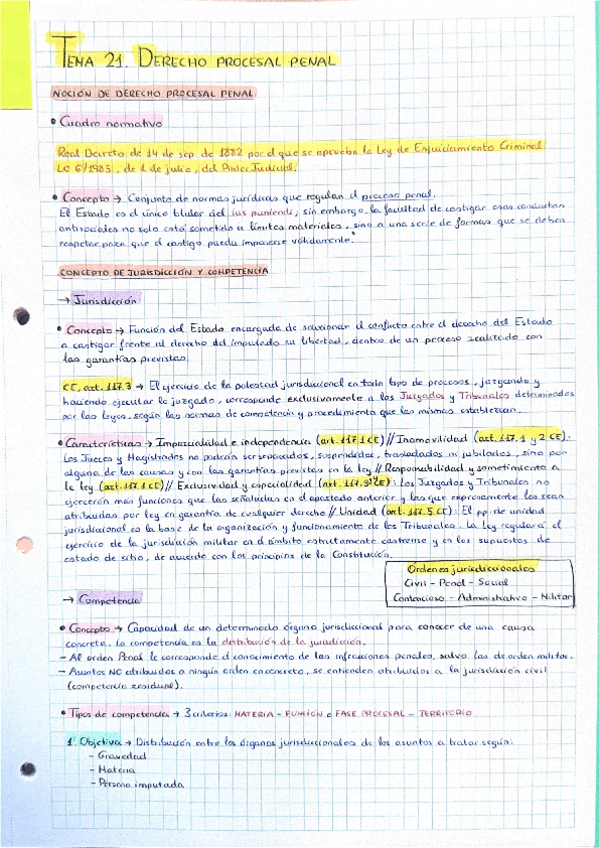 TEMA 21. DERECHO PROCESAL PENAL
NOCIÓN DE DERECHO PROCESAL PENAL
• Cuadro normativo
Real Decreto de 14 de sep. de 1882 por el que se aprueba la Ley de Enjuiciamiento Criminal.
LO 6/1985, de 1 de julio, del Poder Judicial.
• Concepto → Conjunto de normas jurídicas que regulan el proceso penal.
El Estado es el único titular del ius puniendi, sin embargo, la facultad de castigar esas conductas
antisociales no solo está sometido a límites materiales, sino a una serie de formas que se deben
respetar para que el castigo pueda imponerse válidamente.
CONCEPTO DE JURISDICCIÓN Y COMPETENCIA
→ Jurisdicción
• Concepto → Función del Estado encargada de solucionar el conflicto entre el derecho del Estado
a castigar frente al derecho del imputado su libertad, dentro de un proceso realizado con
las garantías previstas.
CE, art. 117.3 → El ejercicio de la potestad jurisdiccional en todo tipo de procesos, juzgando y
haciendo ejecutar lo juzgado, corresponde exclusivamente a los Juzgados y Tribunales determinados
por las leyes, según las normas de competencia y procedimiento que las mismas establezcan.
• Características → Imparcialidad e independencia (art. 117.1 CE) // Inamovilidad (art. 117.1 y 2 CE).
Los Jueces y Magistrados no podrán ser separados, suspendidos, trasladados ni jubilados, sino por
alguna de las causas y con las garantías previstas en la ley // Responsabilidad y sometimiento a
la ley (art. 117.1 CE) // Exclusividad y especialidad (art. 117.3 CE): Los Juzgados y Tribunales no
ejercerán más funciones que las señaladas en el apartado anterior y las que expresamente les sean
atribuidas por ley en garantía de cualquier derecho // Unidad (art. 117.5 CE): El pp. de unidad
jurisdiccional es la base de la organización y funcionamiento de los Tribunales. La ley regulará el
ejercicio de la jurisdicción militar en el ámbito estrictamente castrense y en los supuestos de
estado de sitio, de acuerdo con los principios de la Constitución.
Órdenes jurisdiccionales
Civil - Penal - Social
Contencioso - Administrativo - Militar
→ Competencia
• Concepto → Capacidad de un determinado órgano jurisdiccional para conocer de una causa
concreta. La competencia es la distribución de la jurisdicción.
- Al orden Penal le corresponde el conocimiento de las infracciones penales, salvo las de orden militar.
- Asuntos NO atribuidos a ningún orden en concreto, se entienden atribuidos a la jurisdicción civil
(competencia residual).
• Tipos de competencia → 3 criterios: MATERIA - FUNCIÓN o FASE PROCESAL - TERRITORIO
1. Objetiva → Distribución entre los órganos jurisdiccionales de los asuntos a tratar según:
- Gravedad
- Materia
- Persona imputada